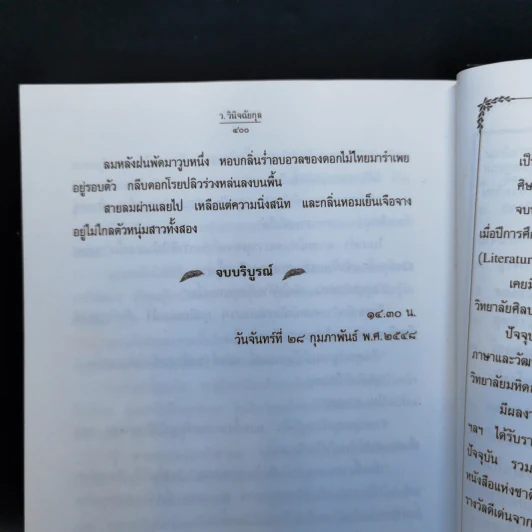 ว. วินิจฉัยกุล
๔๐๐
ลมหลังฝนพัดมาวูบหนึ่ง หอบกลิ่นร่ำอบอวลของดอกไม้ไทยมารำเพย
อยู่รอบตัว กลีบดอกโรยปลิวร่วงหล่นลงบนพื้น
สายลมผ่านเลยไป เหลือแต่ความนิ่งสนิท และกลิ่นหอมเย็นเจือจาง
อยู่ไม่ไกลตัวหนุ่มสาวทั้งสอง
จบบริบูรณ์
๑๔.๓๐ น.
วันจันทร์ที่ ๒๘ กุมภาพันธ์ พ.ศ.๒๕๔๘
เป็
ศิษ
จบ
เมื่อปีการศึ
(Literatur
เคยมี
วิทยาลัยศิลป
ปัจจุบั
ภาษาและวัฒ
วิทยาลัยมหิด
มีผลงา
ฯลฯ ได้รับรา
ปัจจุบัน รวม
หนังสือแห่งชาติ
รางวัลดีเด่นจาก